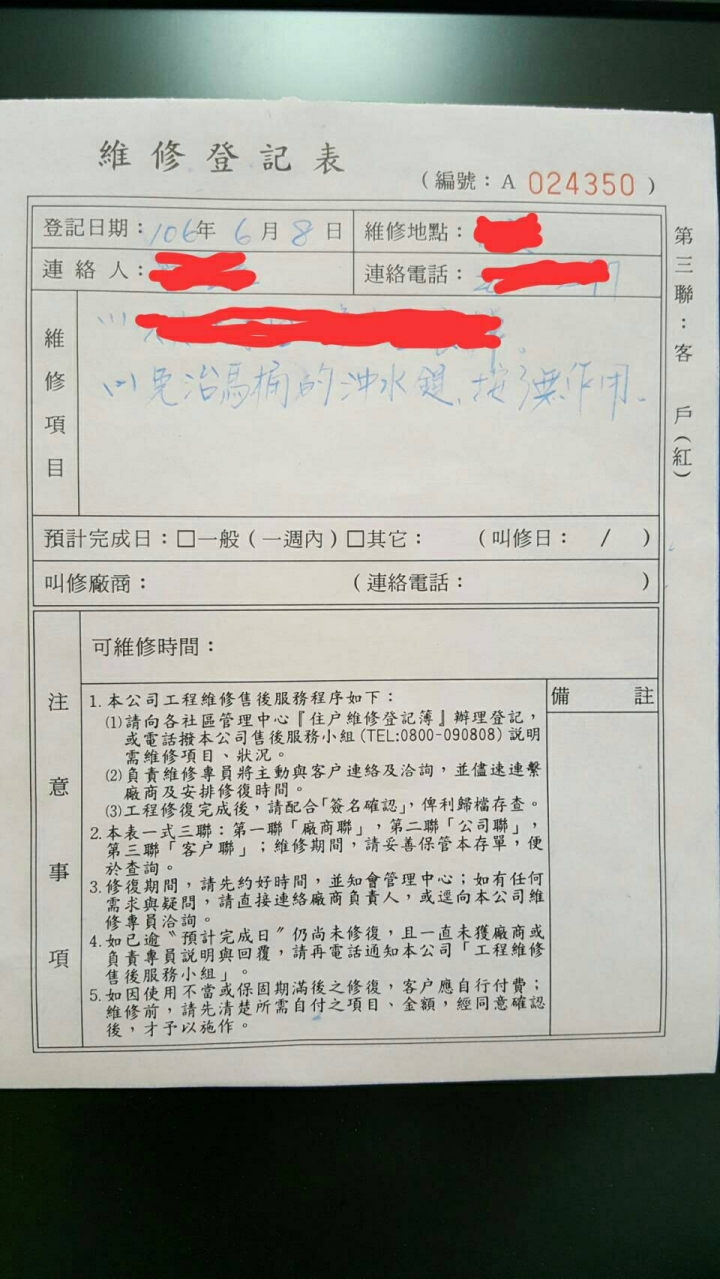 維修登記表
(編號:A 024350)
登記日期:106年 6月 8日 維修地點:
連絡人: 連絡電話:
第三聯:客戶(紅)
維修項目
免治馬桶的沖水鍵,按了無作用.
預計完成日:□一般(一週內)□其它: (叫修日: / )
叫修廠商: (連絡電話: )
注意事項
可維修時間:
備註
1.本公司工程維修售後服務程序如下:
(1)請向各社區管理中心『住戶維修登記簿』辦理登記,
或電話撥本公司售後服務小組(TEL:0800-090808)說明
需維修項目、狀況。
(2)負責維修專員將主動與客戶連絡及洽詢,並儘速連繫
廠商及安排修復時間。
(3)工程修復完成後,請配合「簽名確認」,俾利歸檔存查。
2.本表一式三聯:第一聯「廠商聯」,第二聯「公司聯」,
第三聯「客戶聯」;維修期間,請妥善保管本存單,便
於查詢。
3.修復期間,請先約好時間,並知會管理中心;如有任何
需求與疑問,請直接連絡廠商負責人,或逕向本公司維
修專員洽詢。
4.如已逾〝預計完成日〞仍尚未修復,且一直未獲廠商或
負責專員說明與回覆,請再電話通知本公司「工程維修
售後服務小組」。
5.如因使用不當或保固期滿後之修復,客戶應自行付費;
維修前,請先清楚所需自付之項目、金額,經同意確認
後,才予以施作。